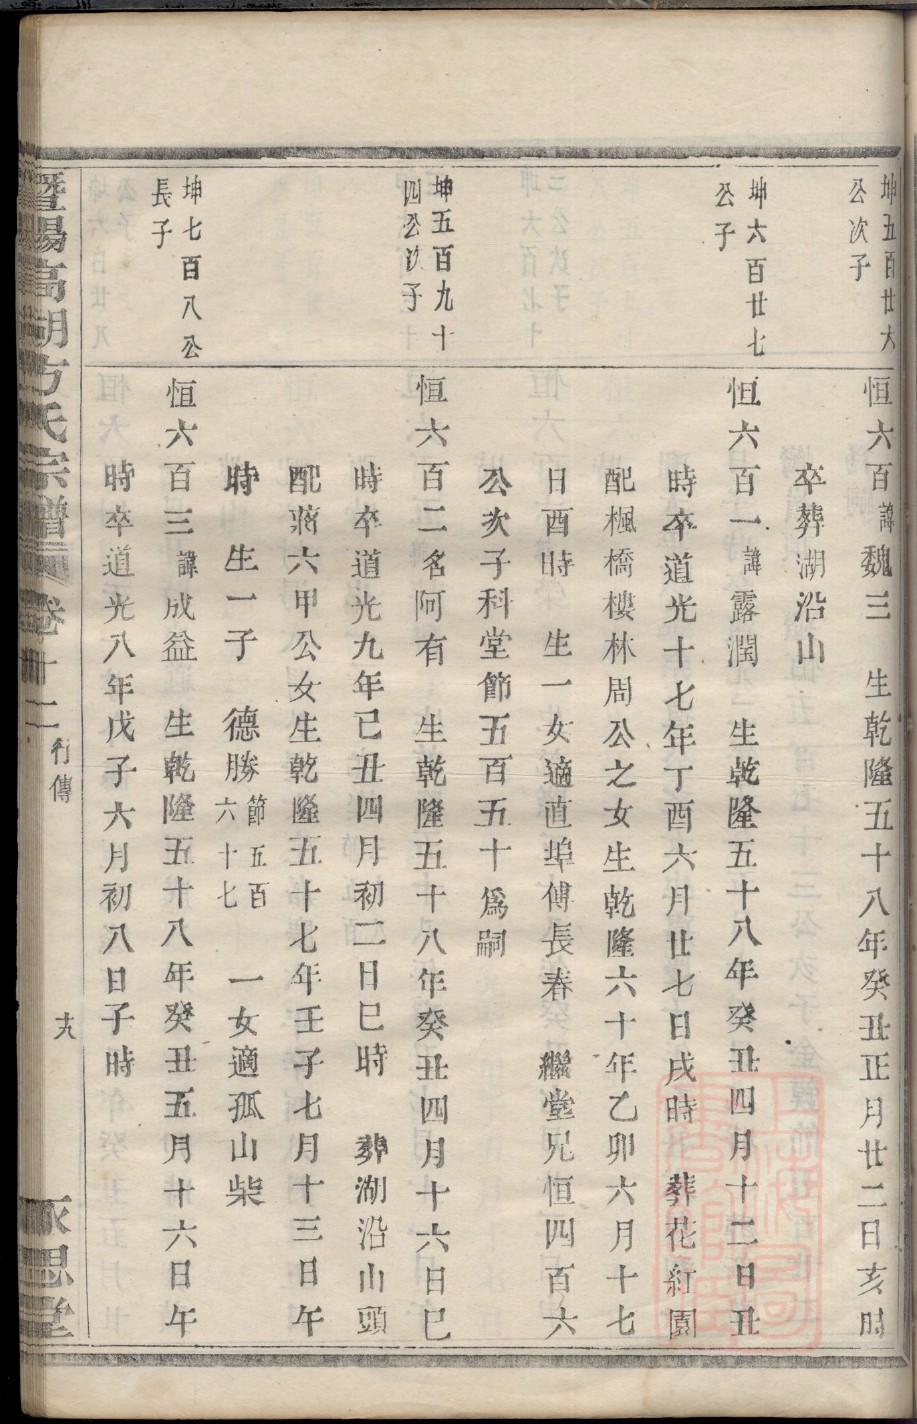 坤五百廿六
公次子
恒六百諱魏三　生乾隆五十八年癸丑正月廿二日亥時
卒葬湖沿山
坤六百廿七
公子
恒六百一諱露潤　生乾隆五十八年癸丑四月十二日丑
時卒道光十七年丁酉六月廿七日戌時　葬花紅園
配楓橋樓林周公之女生乾隆六十年乙卯六月十七
日酉時　生一女適直埠傅長春　繼堂兄恒四百六
公次子科堂節五百五十爲嗣
坤五百九十
四公次子
恒六百二名阿有　生乾隆五十八年癸丑四月十六日巳
時卒道光九年己丑四月初二日巳時　葬湖沿山頭
配蔣六甲公女生乾隆五十七年壬子七月十三日午
時　生一子　德勝節五百六十七　一女適孤山柴
坤七百八公
長子
恒六百三諱成益　生乾隆五十八年癸丑五月十六日午
時卒道光八年戊子六月初八日子時
暨陽高湖方氏宗譜　卷十二　行傳　十九　永思堂